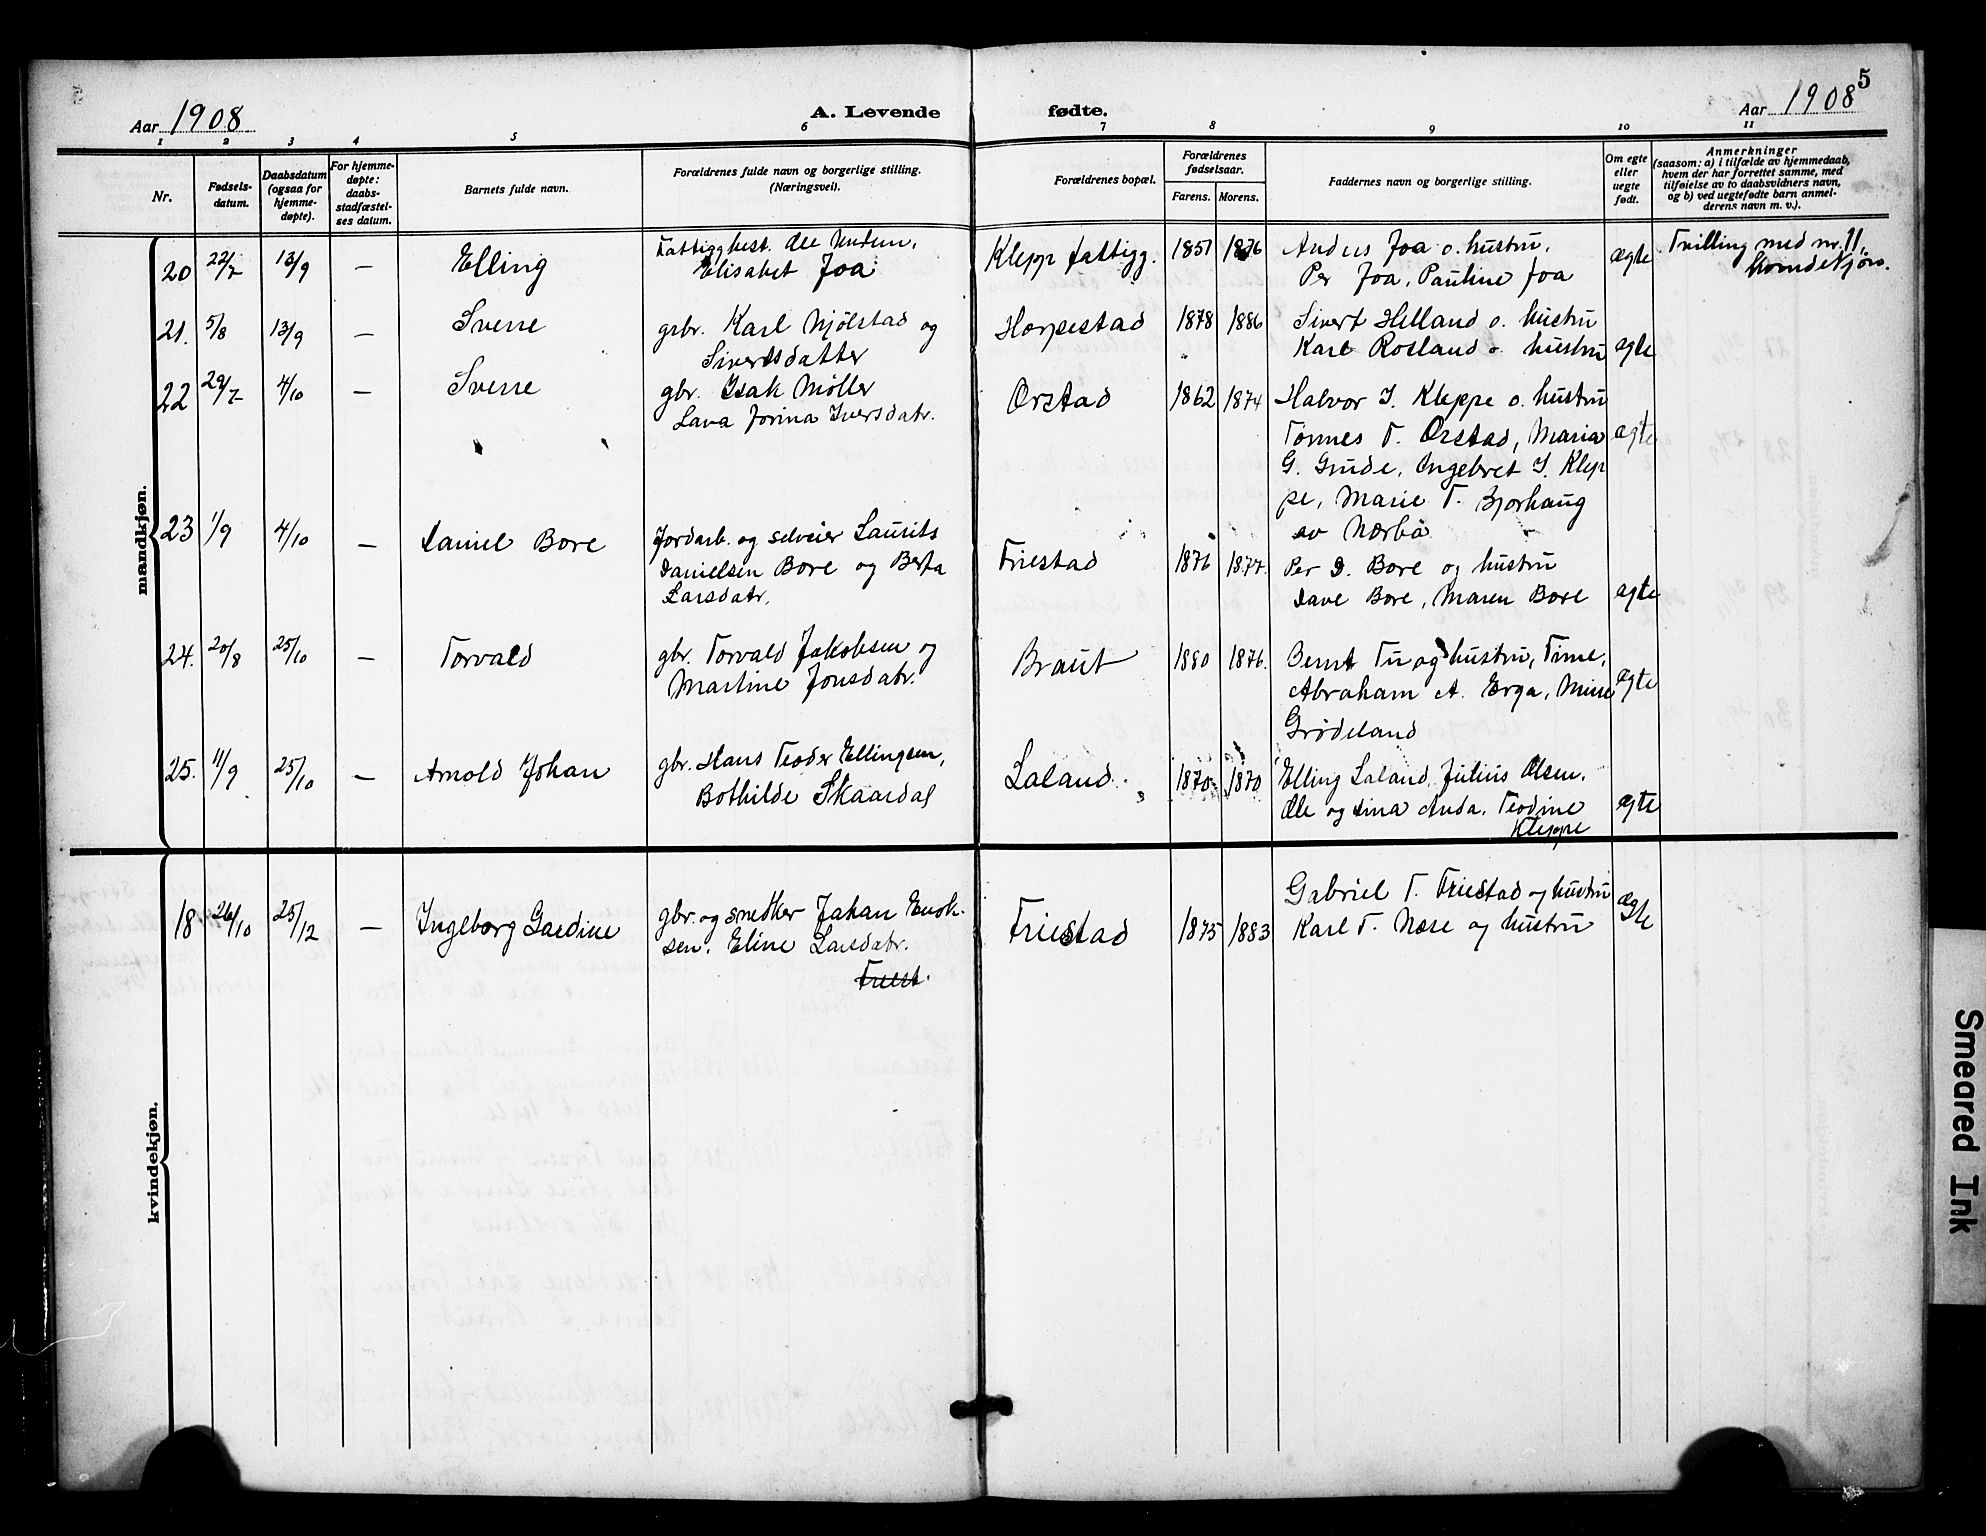 5
Aar 1908
A. Levende fødte.
Aar 1908
1 2 3 4 5 6 7 8 9 10 11
Nr.
Fødsels-
datum.
Daabsdatum
(ogsaa for
hjemme-
døpte).
For hjemme-
døpte:
daabs-
stadfæstel-
ses datum.
Barnets fulde navn.
Forældrenes fulde navn og borgerlige stilling.
(Næringsvei).
Forældrenes bopæl.
Forældrenes
fødselsaar.
Farens. Morens.
Faddernes navn og borgerlige stilling.
Om egte
eller
uegte
født.
Anmerkninger
(saasom: a) i tilfælde av hjemmedaab,
hvem der har forrettet samme, med
tilføielse av to daabsvidners navn,
og b) ved uegtefødte barn anmel-
derens navn m. v.).
mandkjøn.
20 22/7 13/9 — Elling
Fattiggbest.
Elisabet Joa
Klepp fattigg. 1851 1876
Anders Joa o. hustru.
Per Joa, Pauline Joa
ægte
Tvilling med nr. 11,
21. 5/8 13/9 — Sverre
gsbr. Karl Njølstad og
Sivertsdatter
Horpestad 1878 1886
Sivert Helland o. hustru
Karl Rosland o. hustru
ægte
22 29/7 4/10 — Sverre
gbr. Isak Møller
Lava Jorina Iversdatr.
Orstad 1862 1874
Halvor I. Kleppe o. hustru
Tønnes T. Orstad, Maria
G. Grude, Ingebret I. Klep
pe, Marie T. Bjorhaug
av Nærbø
ægte
23 1/9 4/10 — Daniel Bore
Jordarb. og selveier Laurits
Danielsen Bore og Berta
Larsdatr.
Friestad 1876 1877.
Per D. Bore og hustru
Dave Bore, Maren Bore
ægte
24. 20/8 25/10 — Torvald
gbr. Torvald Jakobsen og
Martine Jonsdatr.
Braut 1880 1876.
Bernt Tu og hustru, Time,
Abraham A. Erga,
Grødeland
ægte
25. 11/9 25/10 — Arnold Johan
gbr. Hans Teoder Ellingsen,
Bothilde Skaardal
Laland. 1870 1870
Elling Laland, Julius Olsen.
Ole og Dina Anda, Teodine
Kleppe
ægte
kvindekjøn.
18 26/10 25/12 — Ingeborg Gardine
gbr. og snedker Johan Enok-
sen. Eline Larsdatr.
Friest.
Friestad 1875 1883
Gabriel T. Friestad og hustru
Karl T. Nære og hustru
ægte
Smeared Ink